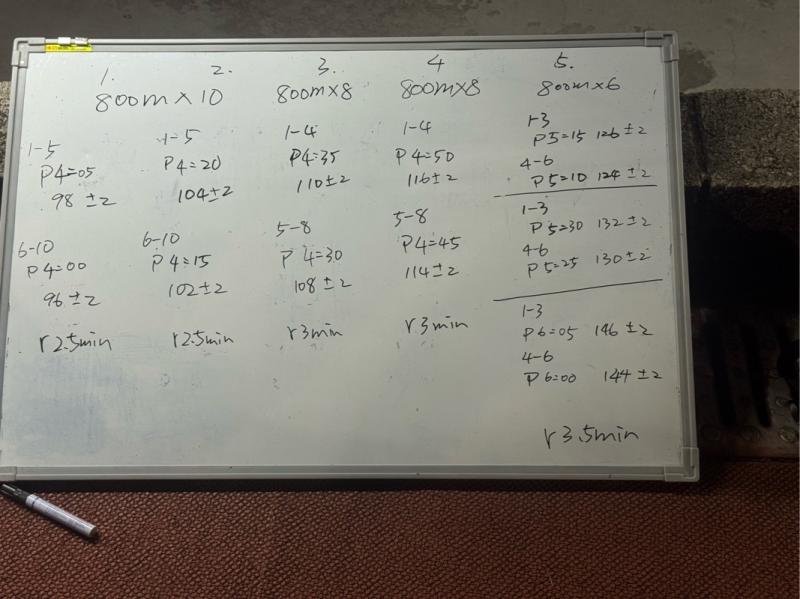 1.
2.
800m×10
1-5
P4=05
98±2
6-10
P4=00
96±2
r2.5min
1-5
P4=20
104±2
6-10
P4=15
102±2
r2.5min
3.
800m×8
1-4
P4=35
110±2
5-8
P4=30
108±2
r3min
4
800m×8
1-4
P4=50
116±2
5-8
P4=45
114±2
r3min
5.
800m×6
1-3
P5=15 126±2
4-6
P5=10 124±2
1-3
P5=30 132±2
4-6
P5=25 130±2
1-3
P6=05 146±2
4-6
P6=00 144±2
r3.5min